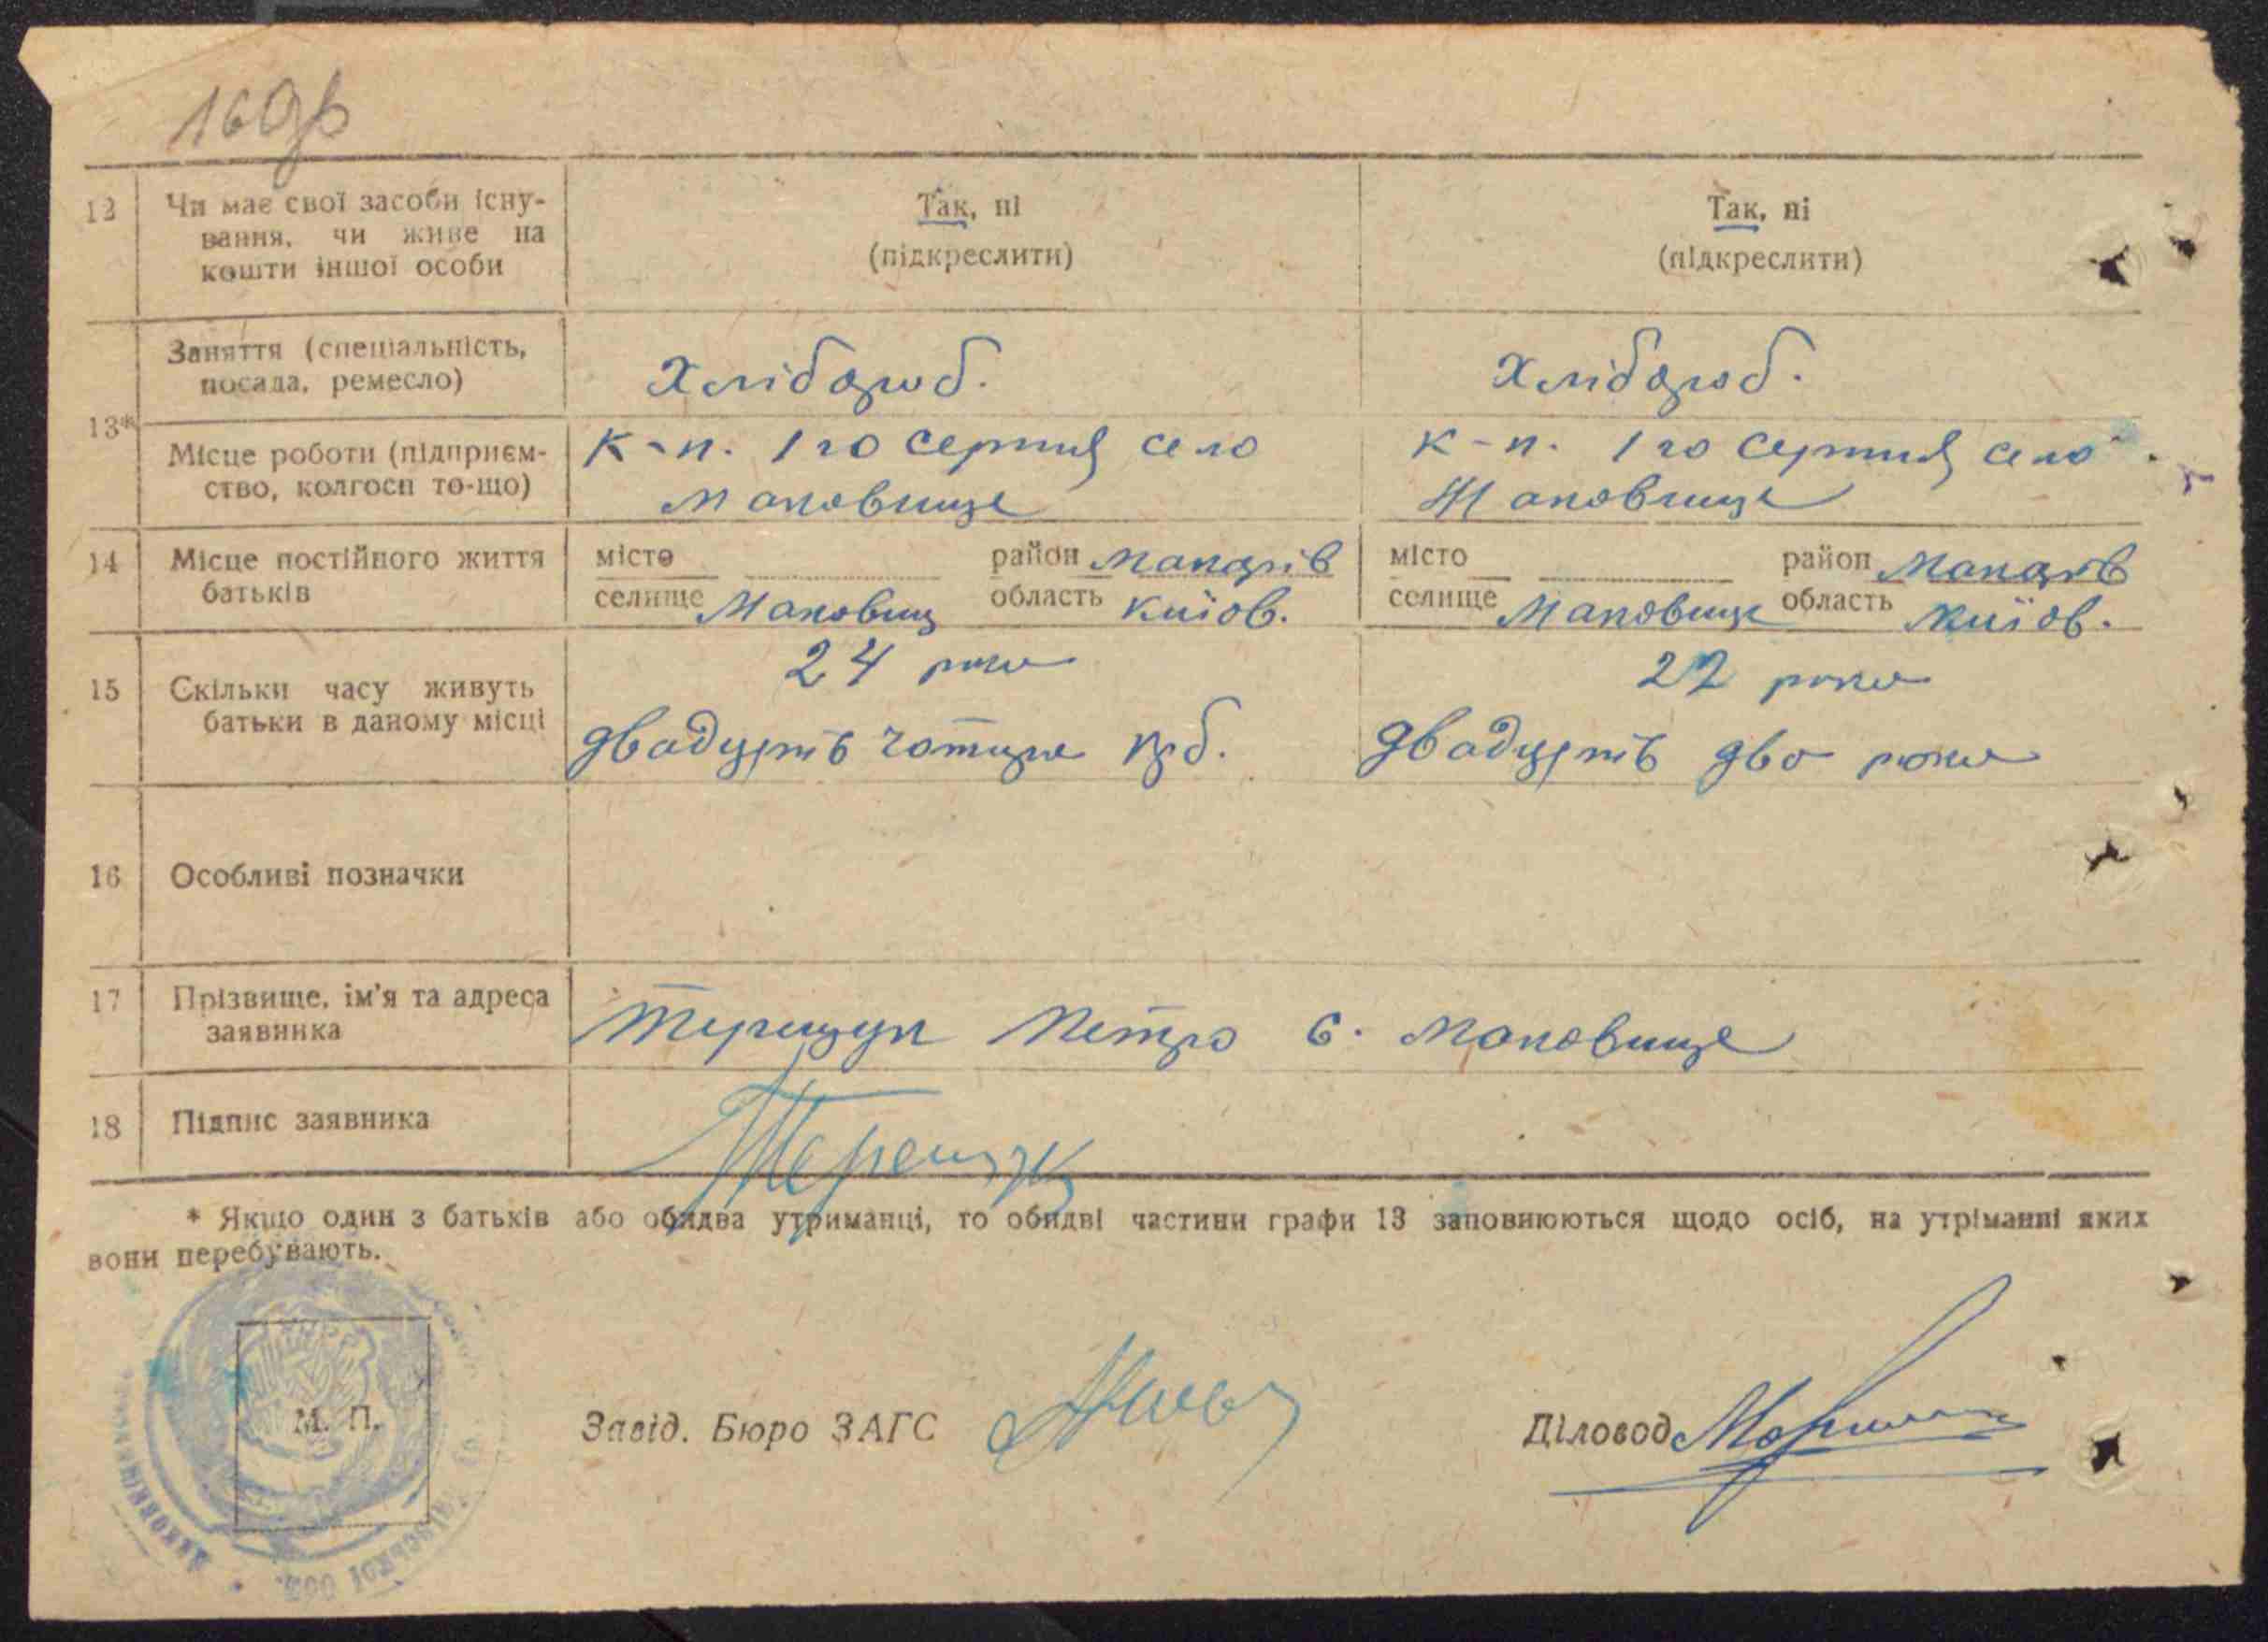 160зв
12 Чи має свої засоби існу- Так, ні Так, ні
вання, чи живе на (підкреслити) (підкреслити)
кошти іншої особи
Заняття (спеціальність, Хлібороб. Хлібороб.
посада, ремесло)
13*
Місце роботи (підприєм- К-п. 1го серпня село К-п. 1го серпня село
ство, колгосп то-що) Маковище Маковище
14 Місце постійного життя місто район Макарів місто район Макарів
батьків селище Маковищ область Київ. селище Маковище область Київ.
24 роки 22 роки
15 Скільки часу живуть
батьки в даному місці двадцять чотири двадцять два роки
16 Особливі позначки
17 Прізвище, ім'я та адреса Терещук Петро с. Маковище
заявника
18 Підпис заявника Терещук
* Якщо один з батьків або обидва утриманці, то обидві частини графи 13 заповнюються щодо осіб, на утріманні яких
вони перебувають.
М. П.
Завід. Бюро ЗАГС Діловод